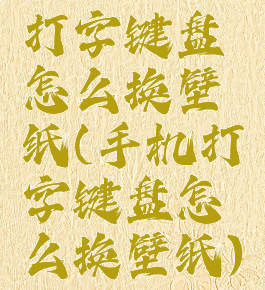 打字键盘
怎么换壁
纸(手机打
字键盘怎
么换壁纸)